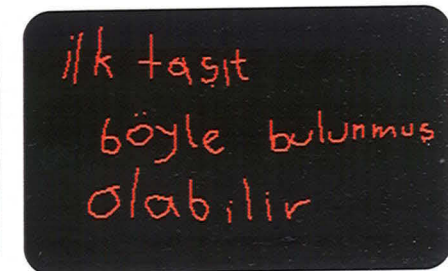 ilk taşıt
böyle bulunmuş
olabilir